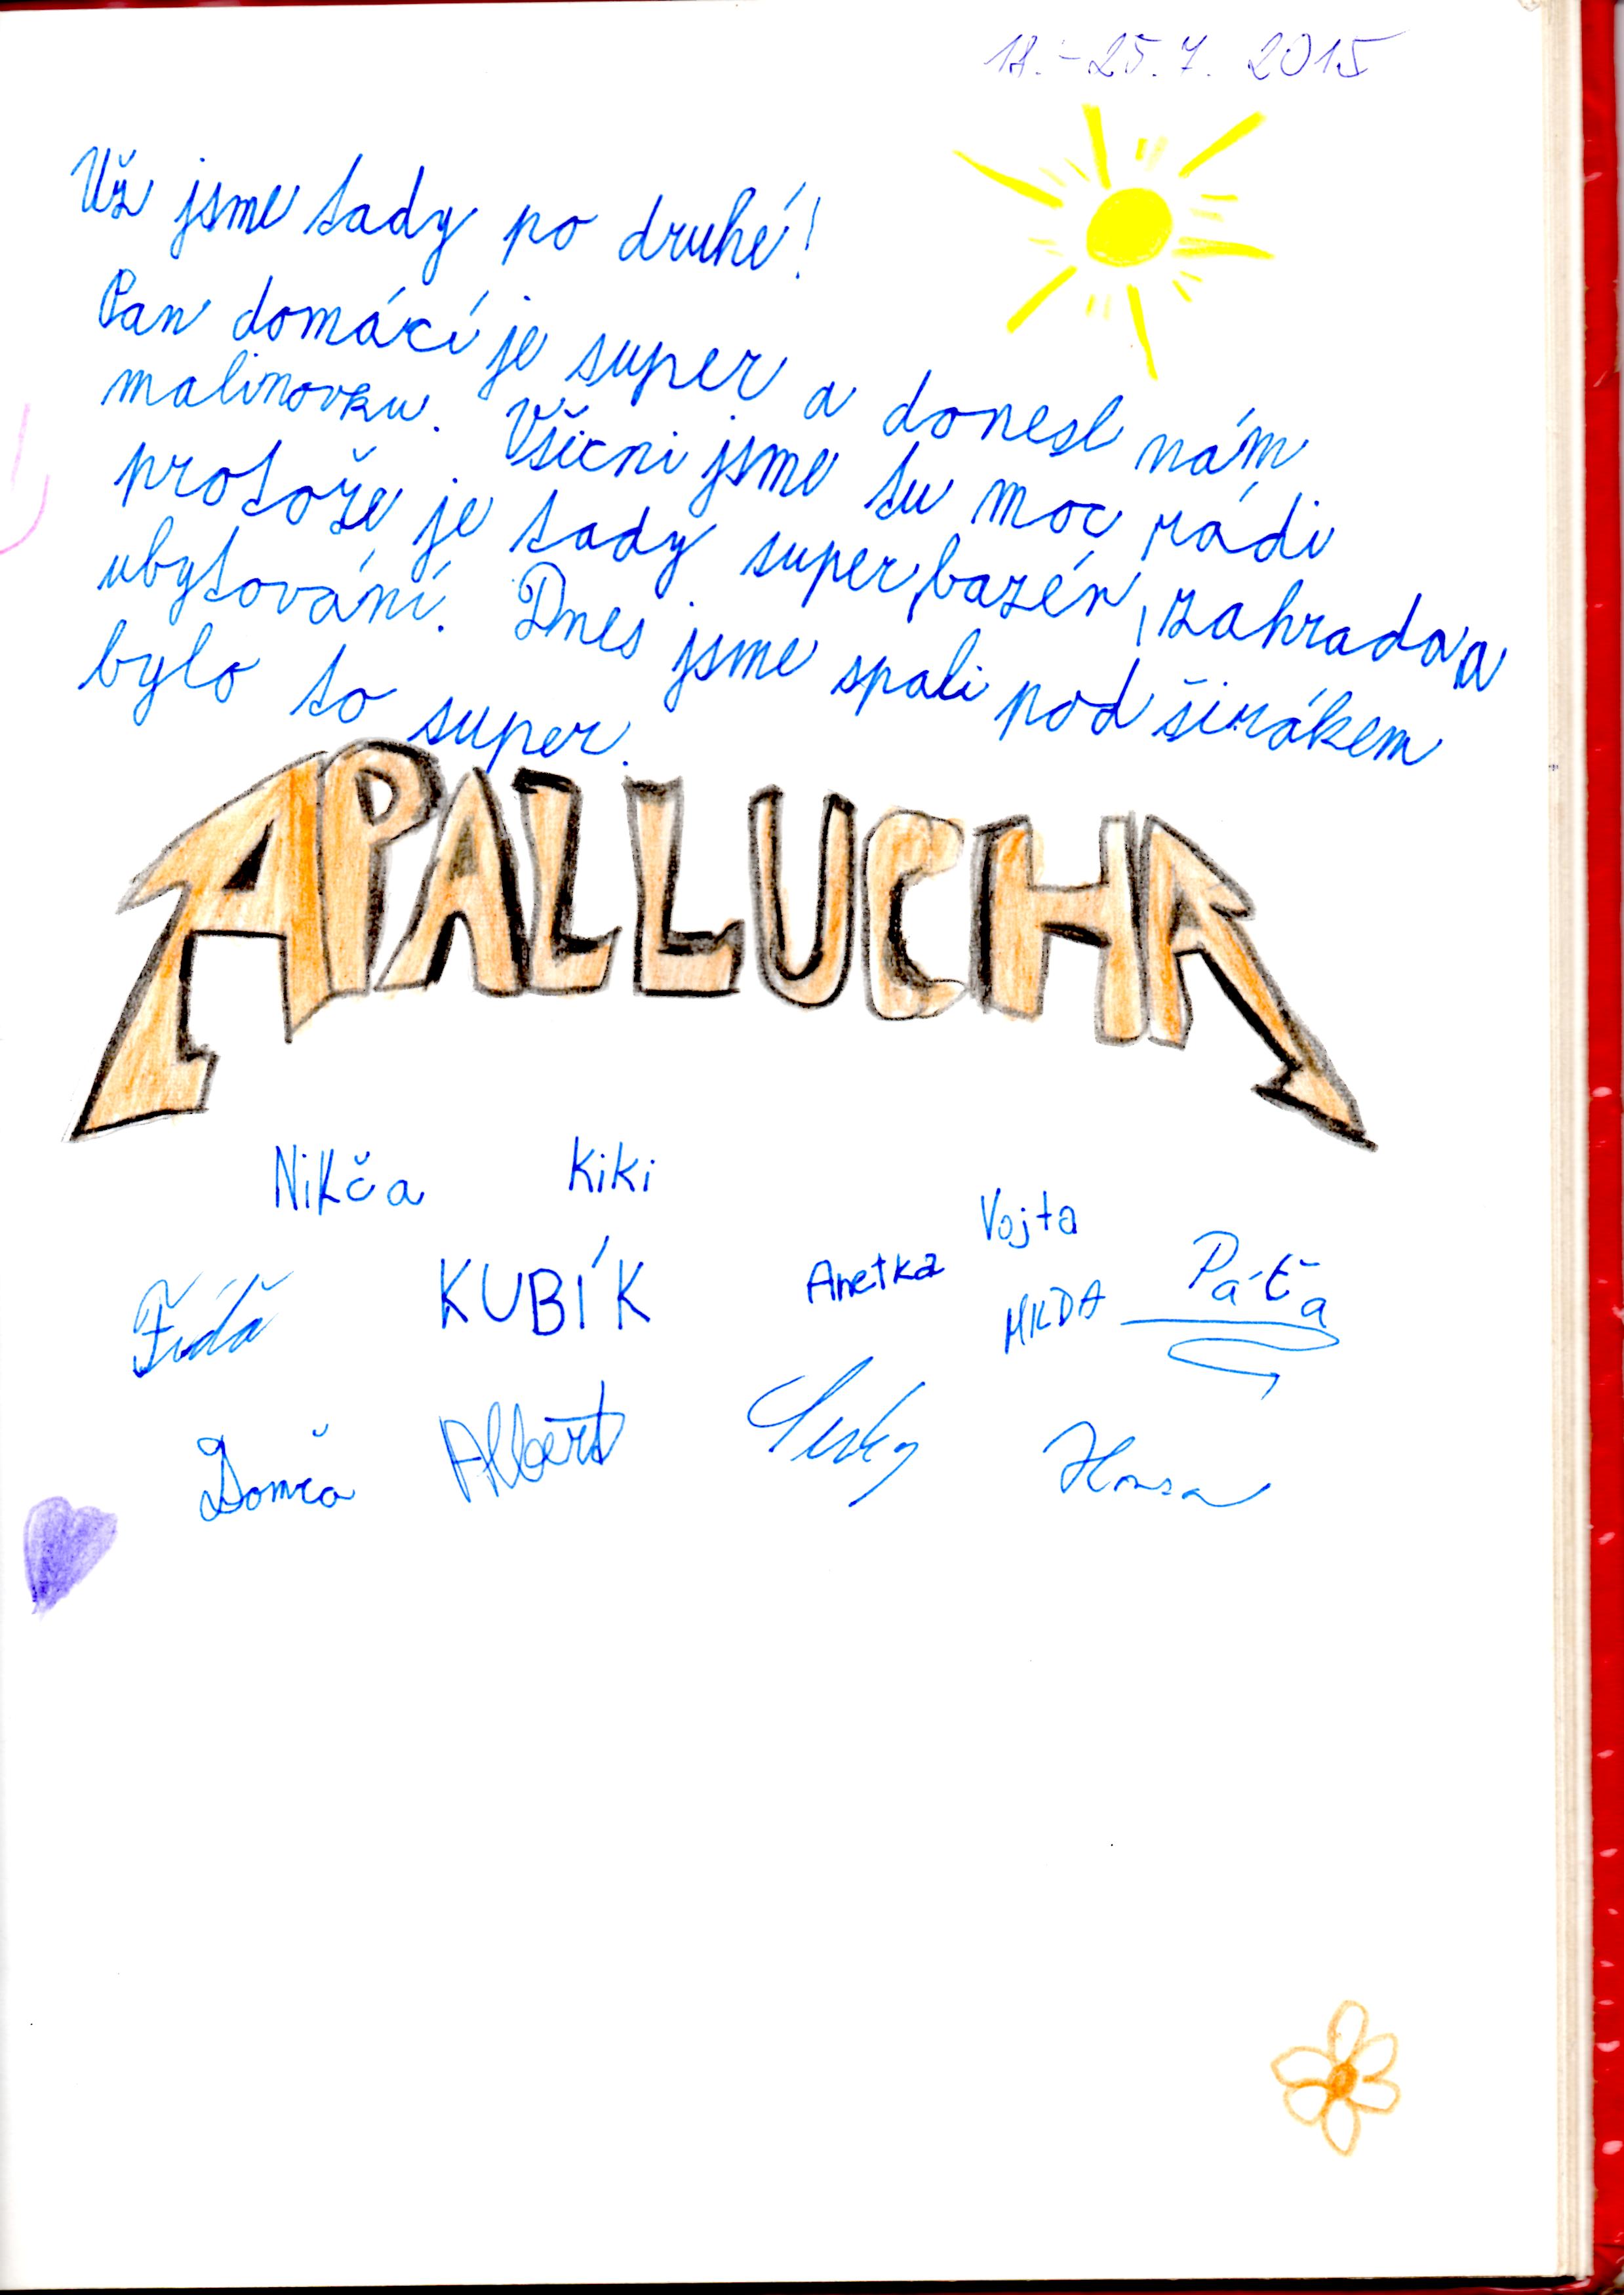 18.-25.7. 2015
Už jsme tady po druhé!
Pan domácí je super a donesl nám
malinovku. Všicni jsme tu moc rádi
protože je tady super, bazén, zahrada a
ubytování. Dnes jsme spali pod širákem
bylo to super.
APALLUCHA
Nikča Kiki
Vojta
KUBÍK Anetka Páťa
Domča Albert Honza